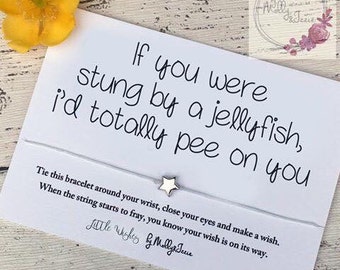 If you were
stung by a jellyfish,
i'd totally pee on you
Tie this bracelet around your wrist, close your eyes and make a wish.
When the string starts to fray, you know your wish is on its way.
Little Wishes
By Molly & Izzie